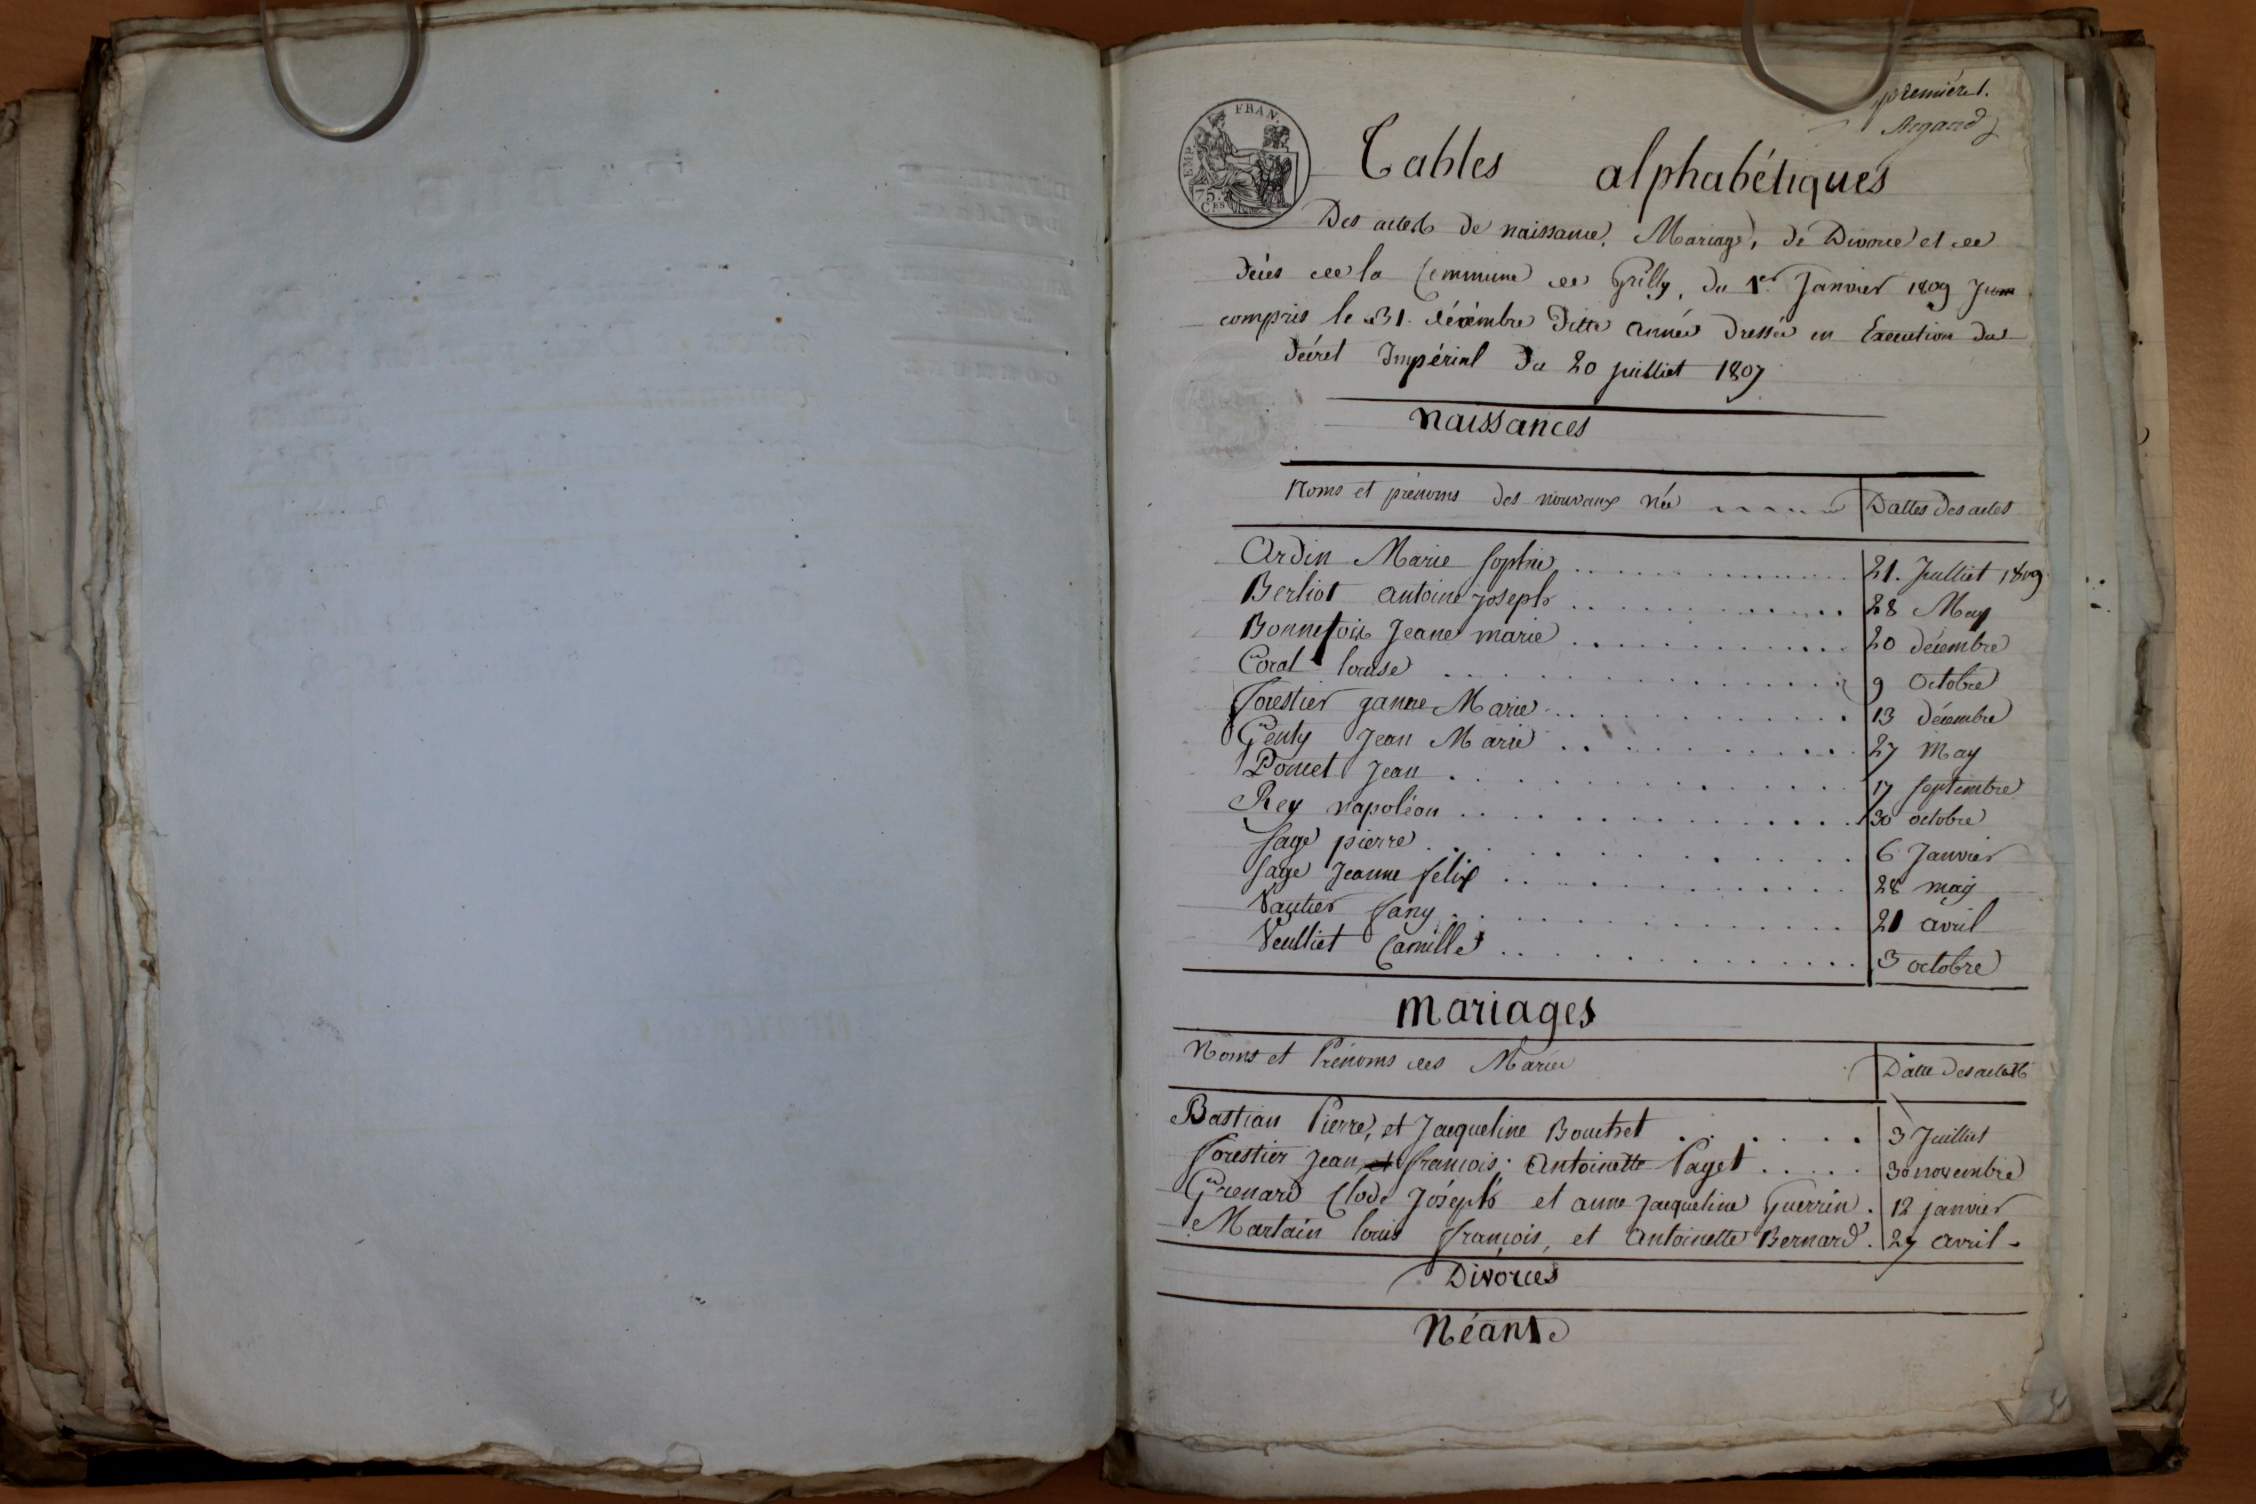 première.
Argand
EMP. FRAN.
75 CES
Tables alphabétiques
Des actes de naissance, Mariage, de Divorce et de
décès de la Commune de Grilly, du 1er Janvier 1809
compris le 31. décémbre Ditte année dressée en Execution du
décret Impérial du 20 juilliet 1807
Naissances
Noms et prénoms des nouveaux née
Dattes des actes
Ardin Marie Sophie 21. Juilliet 1809
Berliot antoine joseph 28 May
Bonnefoix Jeane marie 20 décembre
Coral louise 9 Octobre
Forestier janne Marie 13 décembre
Genty Jean Marie 27 May
Poncet Jean 17 septembre
Rey napoléon 30 octobre
Sage pierre 6 Janvier
Sage Jeanne félix 28 may
Vautier fany 21 avril
Veulliet Camille 3 octobre
Mariages
Noms et Prénoms des Mariée
Datte des actes
Bastian Pierre, et Jacqueline Bouchet 3 Juilliet
forestier Jean françois. Antoinette Paget 30 novembre
Grenard Clode Joséph et anne Jacqueline Guerrin. 12 janvier
Martain louis françois, et Antoinette Bernard. 27 avril
Divorces
Néant